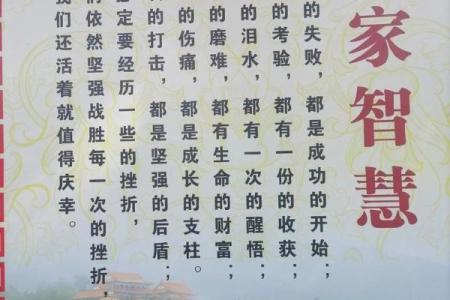 家智慧
的失败,都是成功的开始;
的考验,都有一份的收获;
的泪水,都有一次的醒悟;
的磨难,都有生命的财富;
的伤痛,都是成长的支柱。
的打击,都是坚强的后盾;
定要经历一些的挫折,
们依然坚强战胜每一次的挫折,
们还活着就值得庆幸。